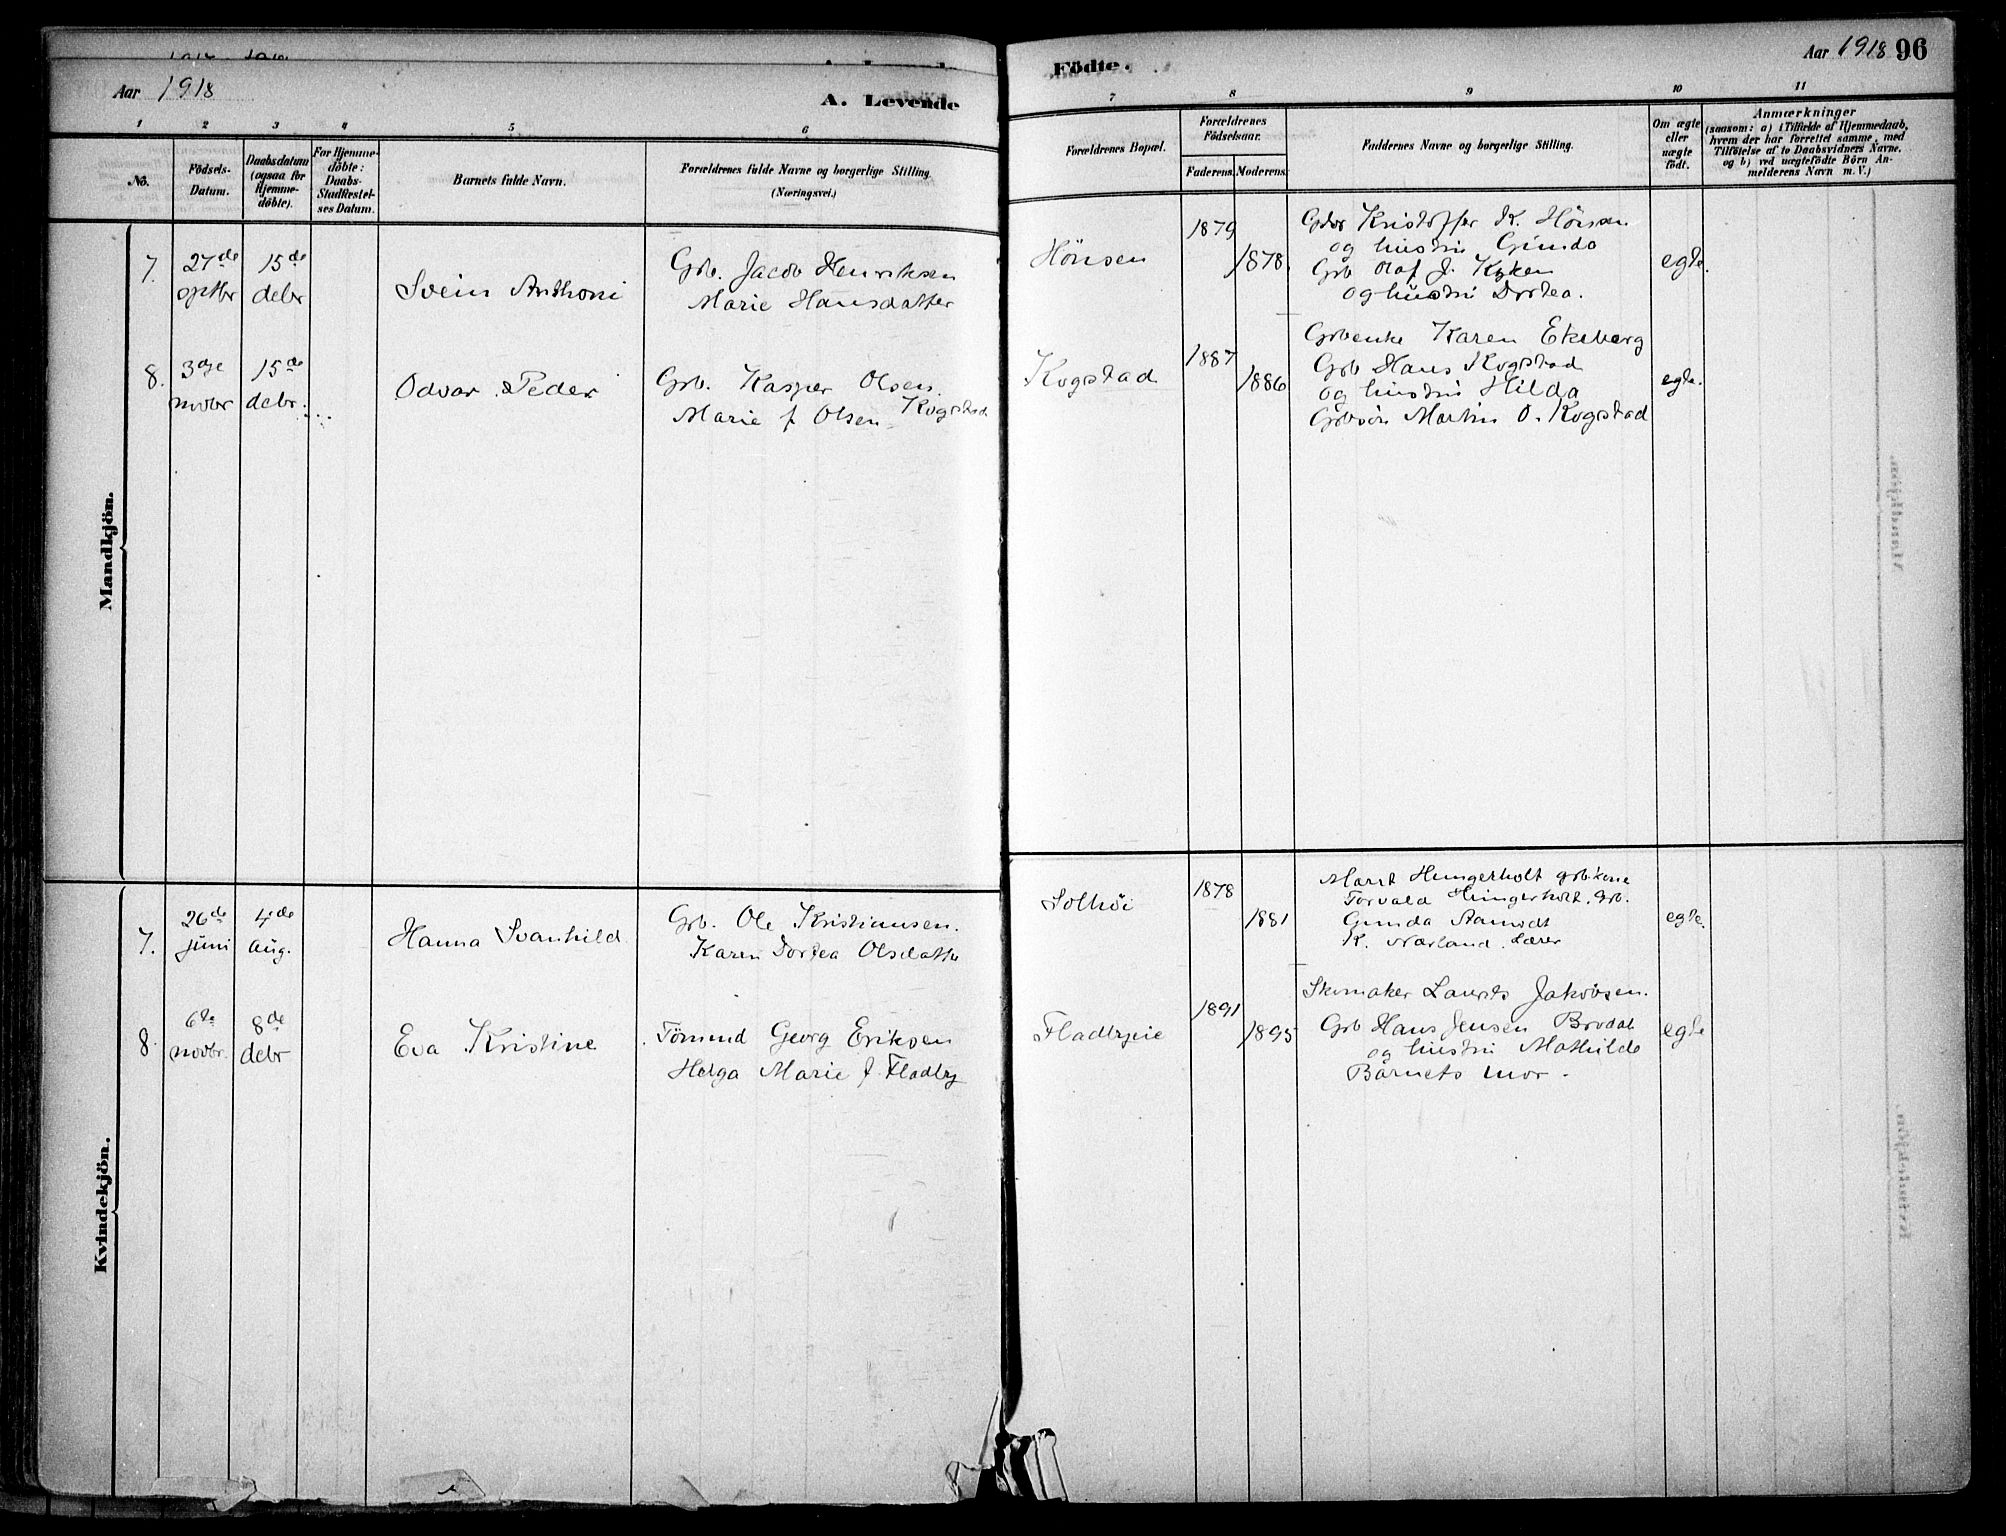 Aar 1918
A. Levende
Födte.
Aar 1918 96
1 2 3 4 5 6 7 8 9 10 11
No.
Födsels-
Datum.
Daabsdatum
(ogsaa for
Hjemme-
döbte).
For Hjemme-
döbte:
Daabs-
Stadfæstel-
ses Datum.
Barnets fulde Navn.
Forældrenes fulde Navne og borgerlige Stilling
(Næringsvei.)
Forældrenes Bopæl.
Forældrenes
Födselsaar.
Faderens.
Moderens.
Faddernes Navne og borgerlige Stilling.
Om ægte
eller
uægte
födt.
Anmærkninger
(saasom: a) i Tilfælde af Hjemmedaab,
hvem der har forrettet samme, med
Tilföielse af to Daabsvidners Navne,
og b) ved uægtefödte Börn An-
melderens Navn m. V.)
Mandkjön.
7.
27de
15de
debr
Svein Anthoni
Grb. Jacob Henriksen
Marie Hansdatter
Hönsen
1879
1878.
Kristoffer K. Hönsen
og hustru Gunda
Grb Olaf J.
og hustru Dortea.
egte.
8.
3dje
novbr
15de
debr.
Odvar Peder
Grb. Kasper Olsen
Marie f Olsen Kogstad
Kogstad
1887
1886
Grbenke Karen Ekeberg
Grb Hans Kogstad
og hustru Hilda
Grbsön Martin O. Kogstad
egte.
Kvindekjön.
7.
26de
juni
4de
aug.
Hanna Svanhild
Grb. Ole Kristiansen.
Karen Dortea Olsdatter
Solhöi
1878
1881
Marit Hungerholt grb'kone
Torvald Hungerholt. Grb.
Gunda Aamodt
K. Nærland. Lærer
egte.
8.
6te
novbr.
8de
debr
Eva Kristine
Tömmd Georg Eriksen
Helga Marie f. Fladby
Fladbyeie
1891
1895
Skomaker Laurits Jakobsen.
Grb Hans Jensen Brodal
og hustru Mathilde
Barnets mor.
egte